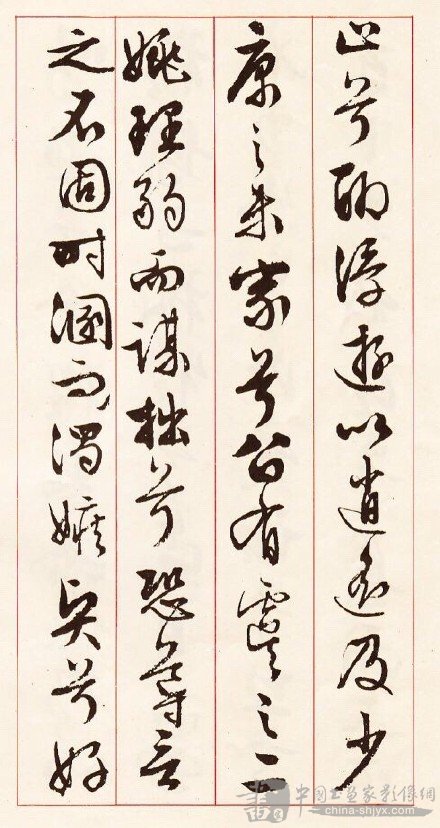 止兮聊浮遊以逍遙及少
康之未家兮留有虞之二
姚理弱而謀拙兮恐導言
之不固时溷而濁嫉賢兮好
中国书画家影像網
china-shjyx.com